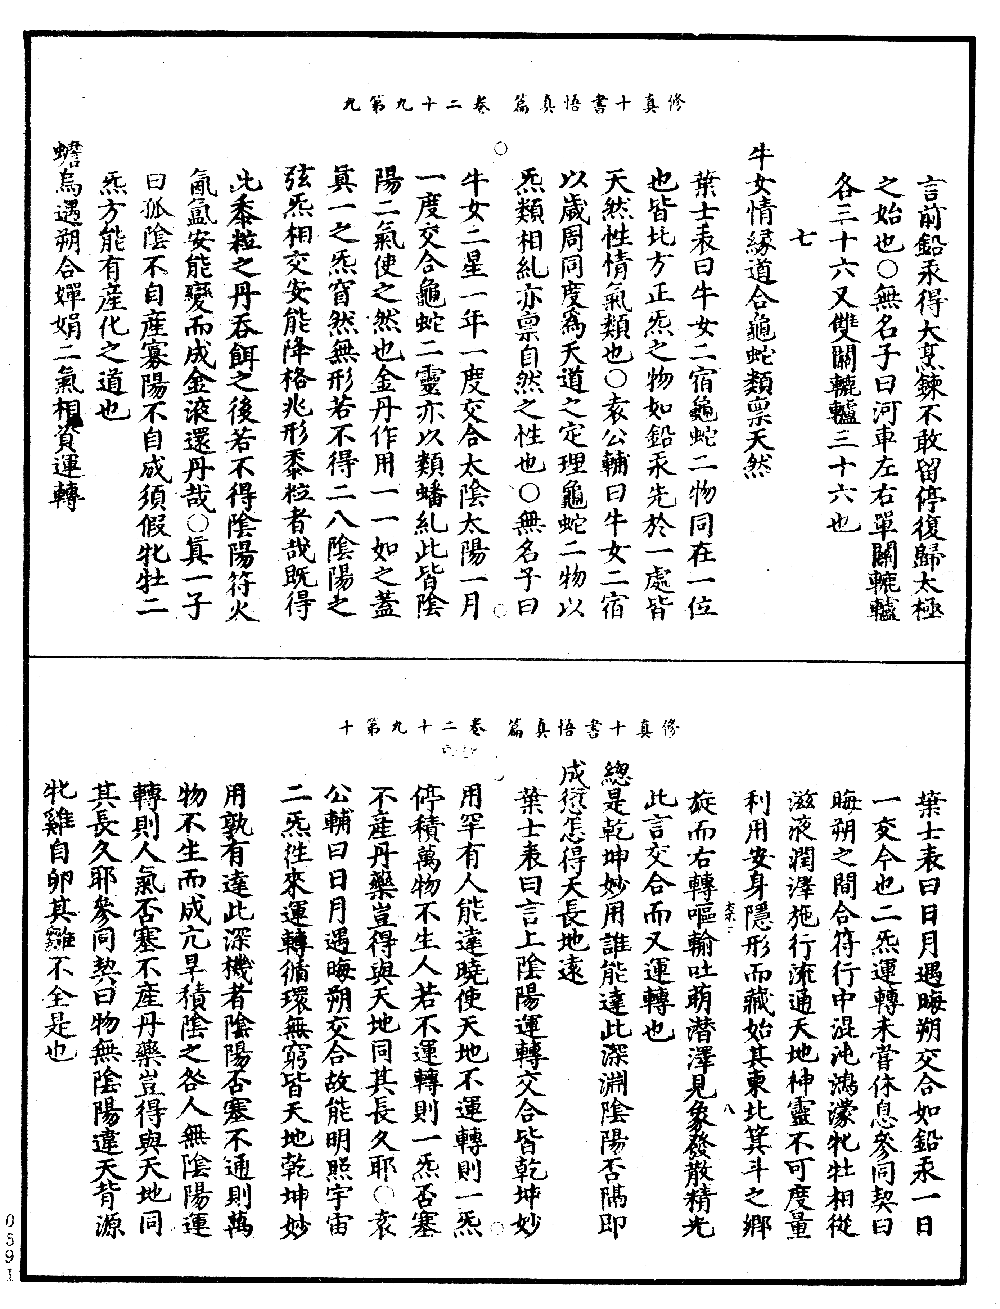 修真十書悟真篇　卷二十九第九
言前鉛汞得大烹鍊不敢留停復歸太極
之始也○無名子曰河車左右單關轆轤
各三十六又雙關轆轤三十六也
七
牛女情緣道合龜蛇類禀天然
葉士表曰牛女二宿龜蛇二物同在一位
也皆比方正炁之物如鉛汞先於一處皆
天然性情氣類也○袁公輔曰牛女二宿
以歲周同度爲天道之定理龜蛇二物以
炁類相糺亦禀自然之性也○無名子曰
牛女二星一年一度交合太陰太陽一月
一度交合龜蛇二靈亦以類蟠糺此皆陰
陽二氣使之然也金丹作用一一如之蓋
眞一之炁窅然無形若不得二八陰陽之
弦炁相交安能降格兆形黍粒者哉既得
此黍粒之丹吞餌之後若不得陰陽符火
氤氳安能變而成金液還丹哉○眞一子
曰孤陰不自產寡陽不自成須假牝牡二
炁方能有產化之道也
蟾烏遇朔合嬋娟二氣相資運轉
修真十書悟真篇　卷二十九第十
葉士表曰日月遇晦朔交合如鉛汞一日
一交今也二炁運轉未嘗休息參同契曰
晦朔之間合符行中混沌鴻濛牝牡相從
滋液潤澤施行流通天地神靈不可度量
利用安身隱形而藏始其東北箕斗之鄉
旋而右轉嘔輪吐萌潛澤見象發散精光
此言交合而又運轉也
八
總是乾坤妙用誰能達此深淵陰陽否隔即
成愆怎得天長地遠
葉士表曰言上陰陽運轉交合皆乾坤妙
用罕有人能達曉使天地不運轉則一炁
停積萬物不生人若不運轉則一炁否塞
不產丹藥豈得與天地同其長久耶○袁
公輔曰日月遇晦朔交合故能明照宇宙
二炁徃來運轉循環無窮皆天地乾坤妙
用孰有達此深機者陰陽否塞不通則萬
物不生而成亢旱積陰之咎人無陰陽運
轉則人氣否塞不產丹藥豈得與天地同
其長久耶參同契曰物無陰陽違天背源
牝雞自卵其雛不全是也
0591